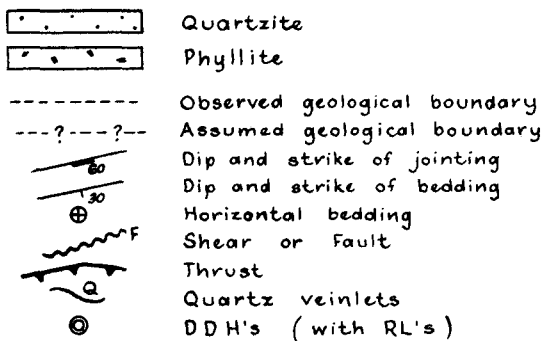 Quartzite
Phyllite
Observed geological boundary
---?----?-- Assumed geological boundary
60 Dip and strike of jointing
30 Dip and strike of bedding
Horizontal bedding
F Shear or Fault
Thrust
Q Quartz veinlets
DDH's (with RL's)